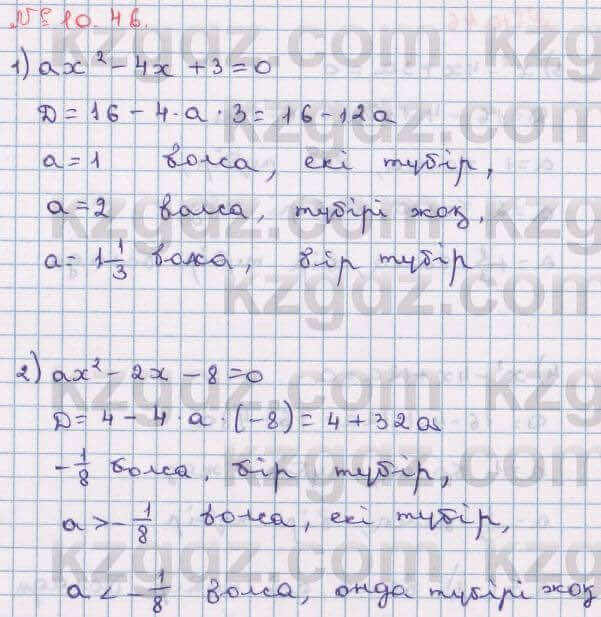 № 10.46.
1) ax² - 4x + 3 = 0
D = 16 - 4·a·3 = 16 - 12a
a = 1 болса, екі түбір,
a = 2 болса, түбірі жоқ,
a = 1 1/3 болса, бір түбір
2) ax² - 2x - 8 = 0
D = 4 - 4·a·(-8) = 4 + 32a
-1/8 болса, бір түбір,
a > -1/8 болса, екі түбір,
a < -1/8 болса, онда түбірі жоқ
kzgdz.com